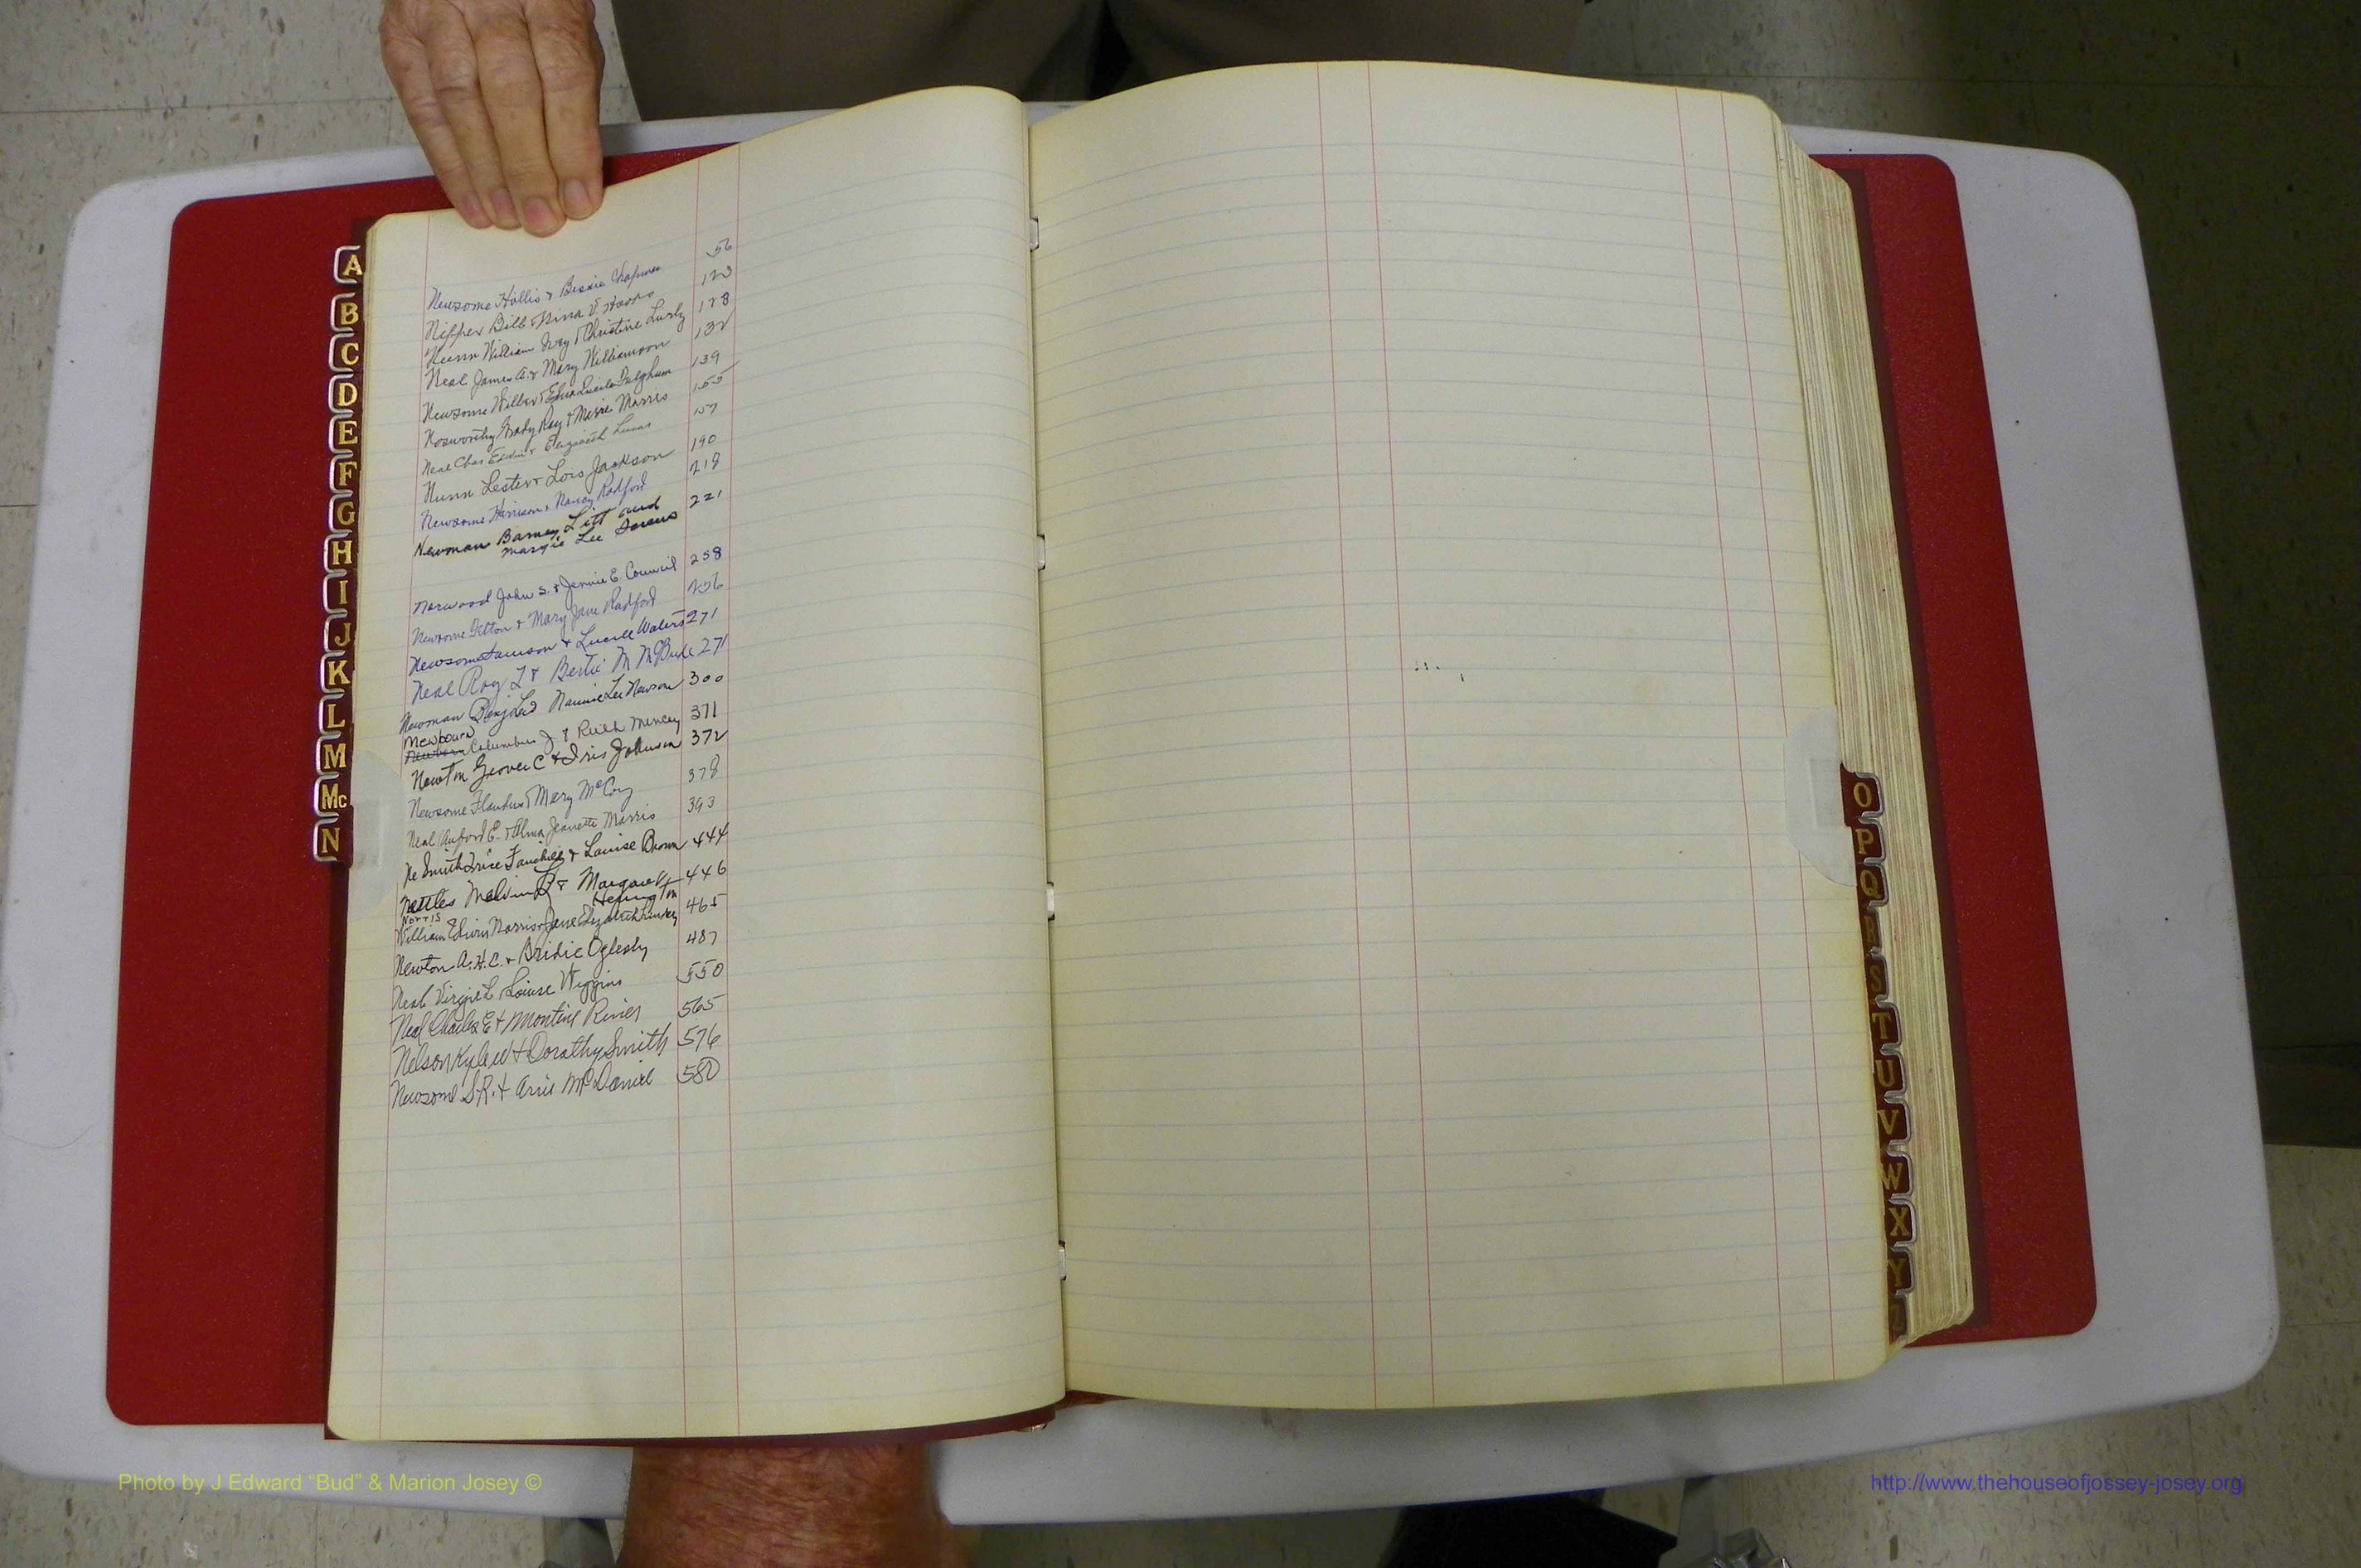 A
B
C
D
E
F
G
H
I
J
K
L
M
Mc
N
Newsome Hollis & Bessie Chapman 56
Nipper Bill & Nina V. Hooks 123
Nunn William Ivey & Christine 128
Neal James A. & Mary Williamson 132
Newsome Wilbur & Edna Lucile Fulghum 139
Nosworthy Grady Ray & Merie Morris 155
Neal Chas Edwin & Elizabeth Lucas 157
Nunn Lester & Lois Jackson 190
Newsome Harrison & Nancy Radford 218
Newman Barney Litt and 221
Margie Lee
Norwood John S. & Jennie E. Council 258
Newsome Gilton & Mary Jane Radford 256
Newsome & Lucille Waters 271
Neal Roy L & Bertie M McBride 271
Newman Benj Lee Nannie Lee Newsom 300
Mewbourn
Newborn Columbus J & Ruth Mincey 371
Newton Grover C & Iris Johnson 372
Newsome & Mary McCoy 378
Neal Buford E. & Alma Jeanette Morris 393
Ne Smith & Louise Brown 444
Nettles Melvin & Margaret 446
Herington
Norris
William Edwin Norris & Jane Elizabeth 465
Newton A.H.C. & Bridie Oglesby 487
Neal Virgil L & Louise Wiggins 550
Neal Charles E & Montine Riner 565
Nelson & Dorothy Smith 576
Newsome S.R. & Arrie McDaniel 580
O
P
Q
R
S
T
U
V
W
X
Y
Photo by J Edward "Bud" & Marion Josey ©
http://www.thehouseofjossey-josey.org